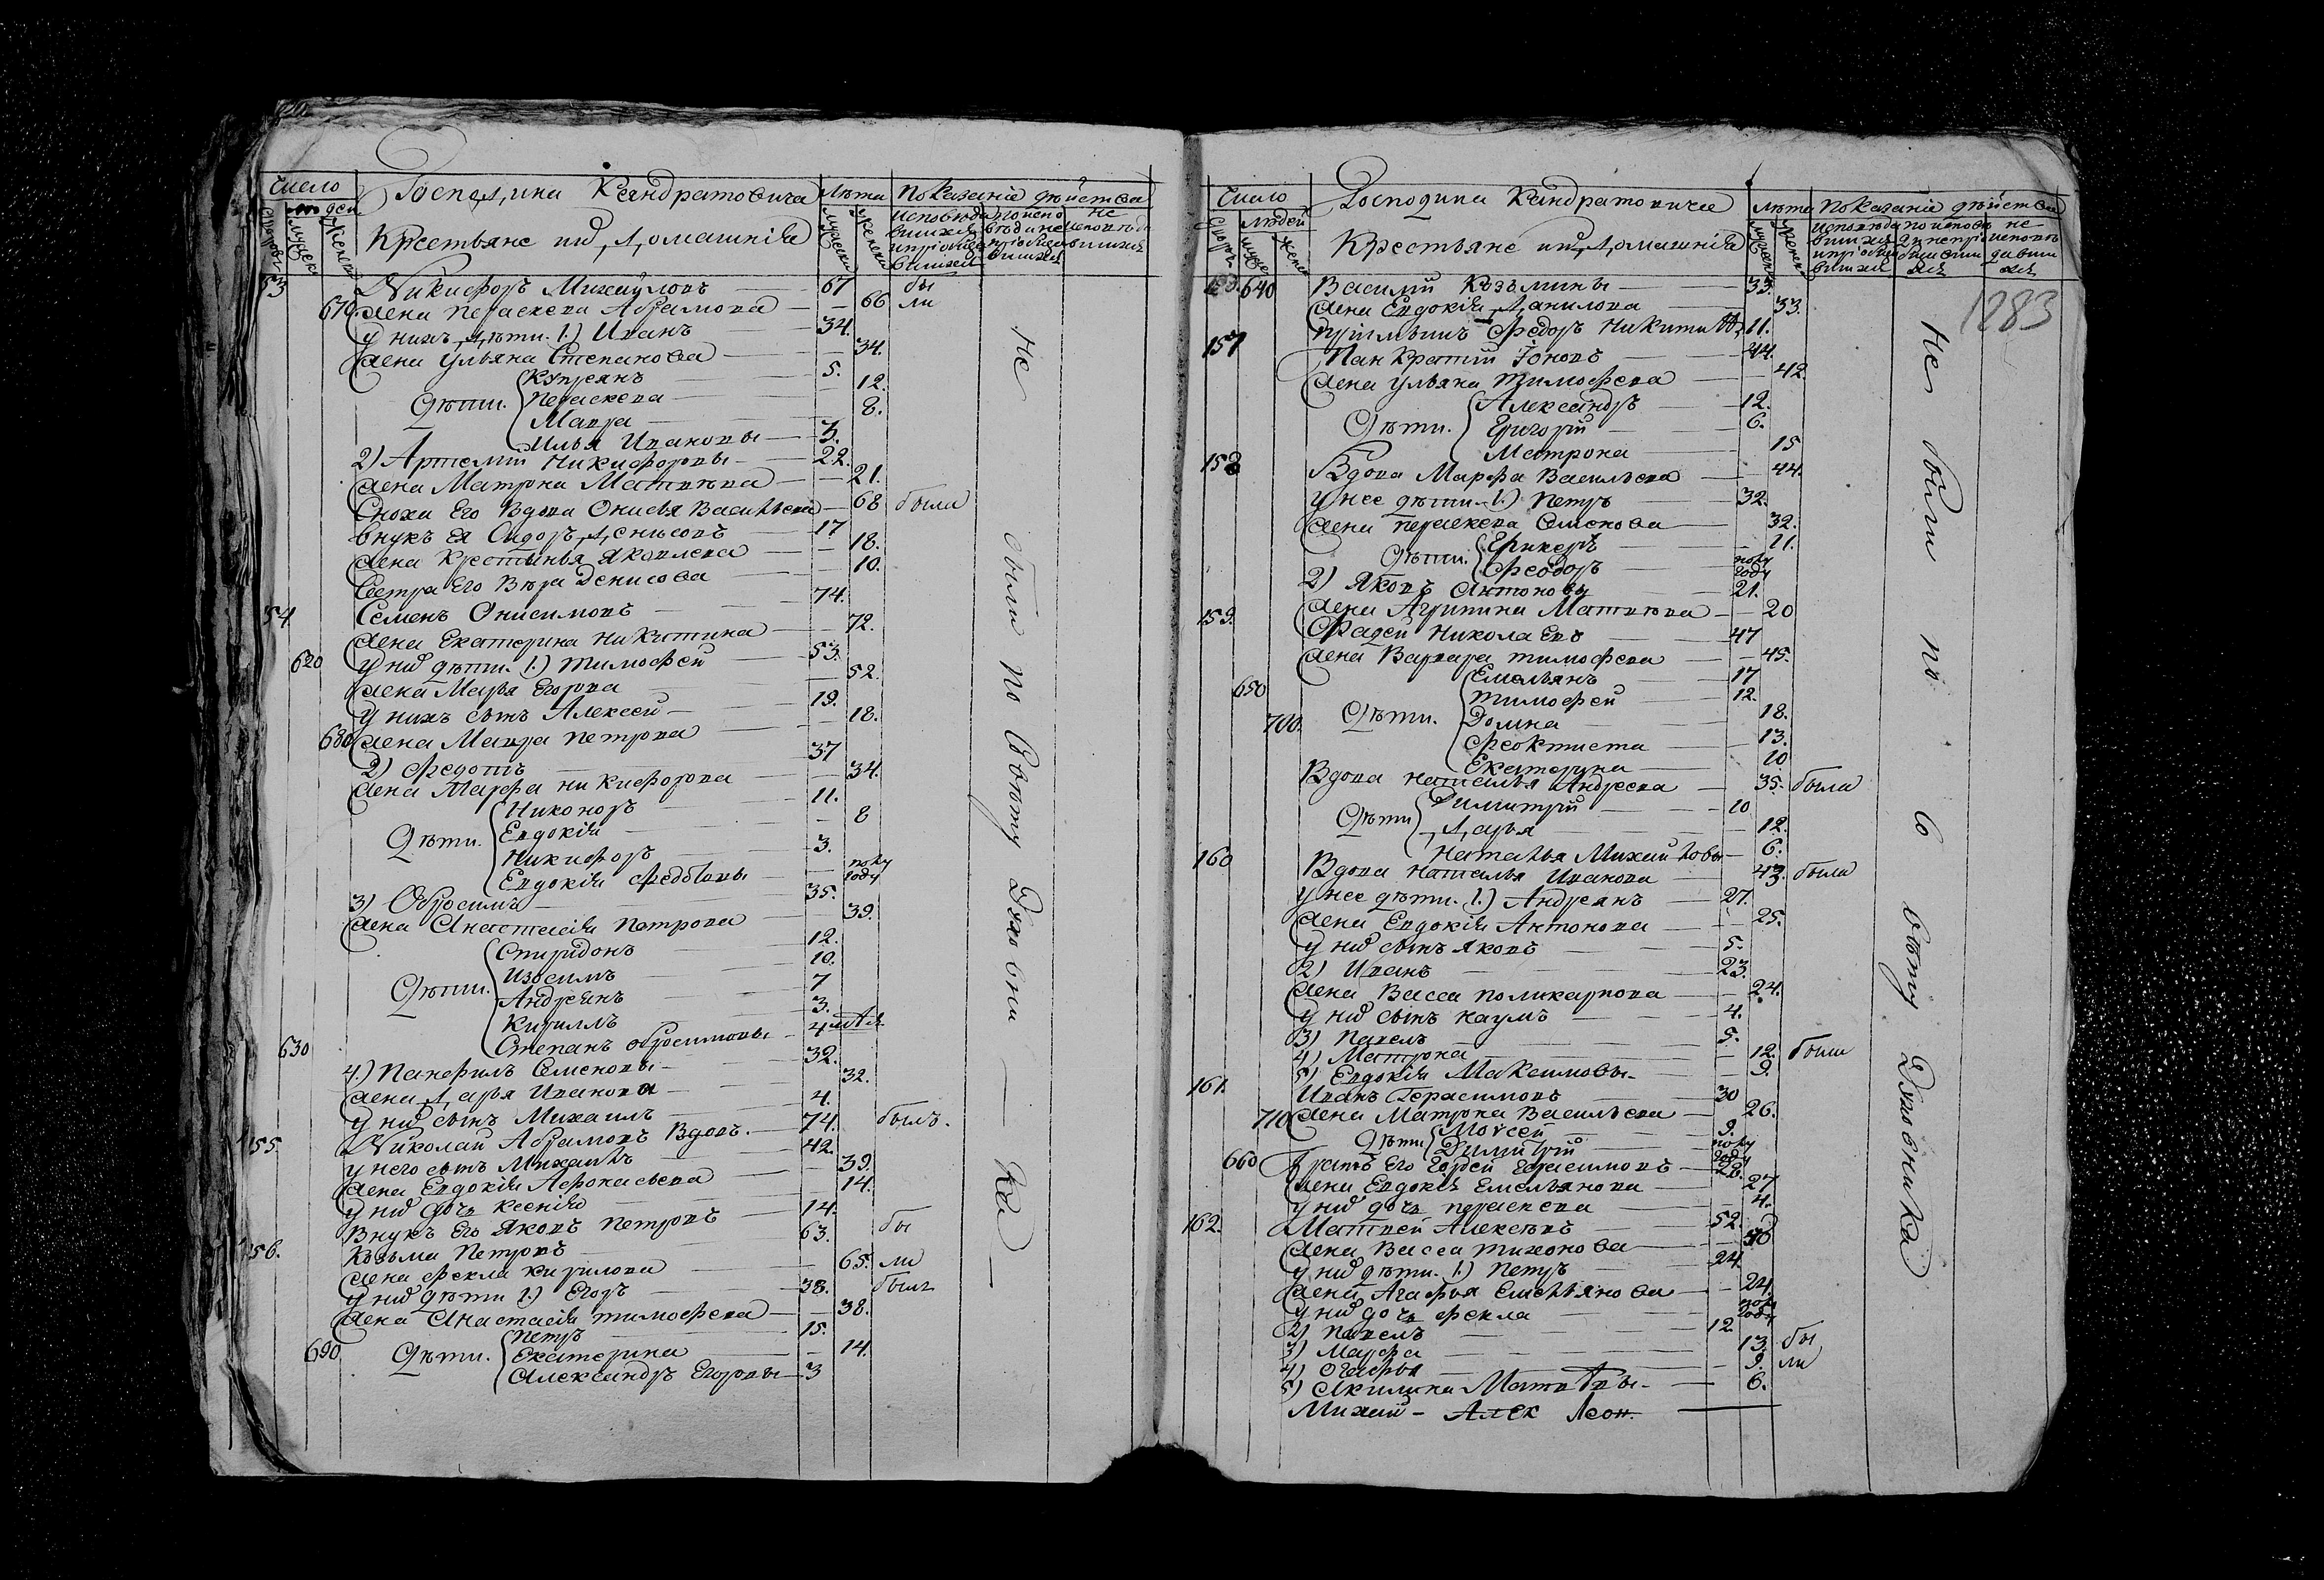 Число
Господина Кандратовича
Лѣта
Показаніе дѣйства
людей
Крестьяне ихъ домашнія
53
Никифоръ Михайловъ 67 бы
670 Жена Параскева Абрамова 66 ли
у нихъ дѣти. 1.) Иванъ 34.
Жена Ульяна Степанова 34.
Дѣти.
Купреянъ 5.
Параскева 12.
Мавра 8.
Илья Ивановы 3.
2) Артемій Никифоровы 22.
Жена Матрона Матвѣева 21.
Сноха Его Вдова Онисья Васильева 68 была
внукъ Ея Сидоръ Денисовъ 17
Жена Крестинья Яковлева 18.
Сестра Его Вѣра Денисова 10.
54
Семенъ Онисимовъ 74.
Жена Екатерина Никитина 72.
620 у них дѣти. 1.) Тимофей 53.
Жена Марья Егорова 52.
у нихъ сынъ Алексей 19.
680 Жена Мавра Петрова 18.
2) Федотъ 37
Жена Марфа Никифорова 34.
Дѣти.
Никоноръ 11.
Евдокія 8
Никифоръ 3.
Евдокія Федотовы полугоду
3) Обросимъ 35.
Жена Анастасія Петрова 39.
Дѣти.
Спиридонъ 12.
Изосимъ 10.
Андреянъ 7
Кирилъ 3.
630 Степанъ Обросимовы 4
4.) Панфилъ Семеновы 32.
Жена Дарья Иванова 32.
у них сынъ Михаилъ 4.
155.
Николай Абрамовъ Вдовъ. 74. былъ.
у него сынъ Михаилъ 42.
Жена Евдокія Афонасьева 39.
у них дочь Ксенія 14.
Внукъ Его Яковъ Петровъ 14.
156.
Козьма Петровъ 63. бы
Жена Фекла Кирилова 65. ли
у них дѣти 1.) Егоръ 38. былъ
Жена Анастасія Тимофеева 38.
690
Дѣти.
Петръ 15.
Екатерина 14.
Александръ Егоровы 3
не были по Совѣту Духовни — ка
Число
Господина Кандратовича
Лѣта
Показаніе дѣйства
людей
Крестьяне ихъ домашнія
1283
640 Василій Козьминъ 33.
Жена Евдокія Данилова 33.
пріимышъ Федоръ Никитинъ 11.
157
Панкратій Іоновъ 44.
Жена Ульяна Тимофеева 42.
Дѣти.
Александръ 12.
Григорій 6.
Матрона 15
158
Вдова Марфа Васильева 44.
у нее дѣти. 1.) Петръ 32.
Жена Параскева Семенова 32.
Дѣти. 11.
Феодоръ полугоду
2) Яковъ Антоновы 21.
Жена Агрипина Матвѣева 20
159.
Фадей Николаевъ 47
Жена Варвара Тимофеева 45.
Дѣти.
Емельянъ 17
650 Тимофей 12.
700. Домна 18.
Феоктиста 13.
Екатерина 10
Вдова Наталья Андреева 35. была
Дѣти
Димитрій 10
Дарья 12.
Наталья Михайловы 6.
160
Вдова Наталья Иванова 43. была
у нее дѣти. 1.) Андреянъ 27.
Жена Евдокія Антонова 25.
у них сынъ Яковъ 5.
2) Иванъ 23.
Жена Васса Поликарпова 24.
у них сынъ Наумъ 4.
3) Павелъ 5.
4) Матрона 12. были
5) Евдокія Максимовы 9.
161.
Иванъ Герасимовъ 30
710 Жена Матрона Васильева 26.
Дѣти
Моѵсей 9.
Димитрій полугоду
660 братъ Его Гордей Герасимовъ 28.
Жена Евдокія Емельянова 27
у них дочь Параскева 4.
162.
Матвей Алексѣевъ 52.
Жена Васса Тихонова
у них дѣти. 1.) Петръ 24.
Жена Агафья Емельянова 24.
у них дочь Фекла полугоду
2) Павелъ 12.
3) Марфа 13. бы
4) Огафья 9. ли
5) Акилина Матвѣевы 6.
Михай - Алек Леон.
Не были по совѣту Духовника